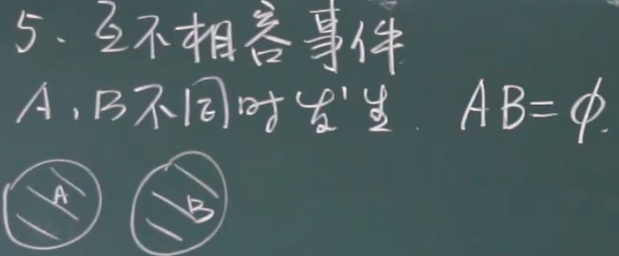 5、互不相容事件
A,B不同时发生. AB=φ.
A B